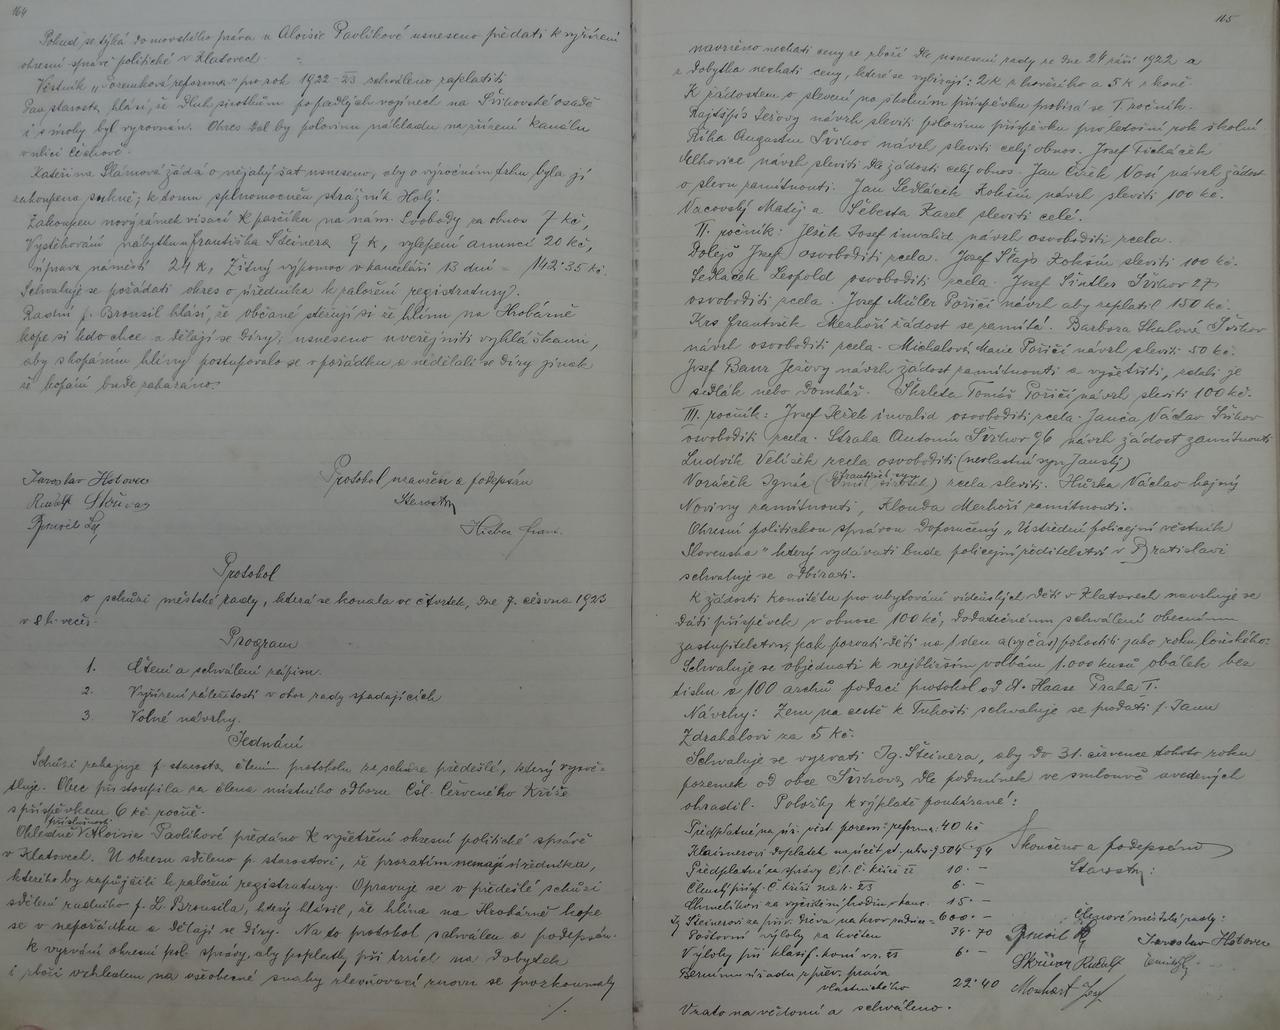 164
Pokud se týká domovského práva u Aloisie Pavlíkové usneseno předati k vyřízení
okresní správě politické v Klatovech.
Věstník „Pozemková reforma" pro rok 1922-23 schváleno zaplatiti
Pan starosta hlásí, že dluh sirotkům po padlých vojínech na Švihovské osadě
i s úroky byl vyrovnán. Okres dal by polovinu nákladu na zřízení kanálu
v ulici
Kateřina Slámová žádá o nějaký šat usneseno, aby o výročním trhu byla jí
zakoupena sukně; k tomu splnomocněn strážník Holý.
Zakoupen nový zámek visací k parčíku na nám. Svobody za obnos 7 kč,
Vystěhování nábytku Františka Šteinera 9 k, vylepení 20 kč,
úprava náměstí 24 k, Žitný výpomoc v kanceláři 13 dní = 142·35 kč.
Schvaluje se požádati okres o úředníka k založení registratury.
Radní p. Brousil hlásí, že občané stěžují si že hlínu na Hrobárně
kope si kdo chce a dělají se díry, usneseno uveřejniti vyhláškami,
aby s kopáním hlíny postupovalo se v pořádku a nedělali se díry jinak
že kopání bude zakázáno.
Jaroslav Hotovec
Rudolf Skřivan
Brousil
Protokol uzavřen a podepsán
Starosta
Protokol
o schůzi městské rady, která se konala ve čtvrtek, dne 7. června 1923
v 8 h. večer.
Program
1. Čtení a schválení zápisu.
2. Vyřízení záležitostí v obor rady spadajících
3. Volné návrhy.
Jednání
Schůzi zahajuje p. starosta čtením protokolu ze schůze předešlé, který vysvě-
tluje. Obec přistoupila za člena místního odboru Čsl. Červeného Kříže
s příspěvkem 6 kč ročně.
Ohledně příslušnosti Aloisie Pavlíkové předáno k vyšetření okresní politické správě
v Klatovech. U okresu sděleno p. starostovi, že prozatím nemají úředníka,
kterého by zapůjčili k založení registratury. Opravuje se v předešlé schůzi
sdělení radního p. L. Brousila, který hlásil, že hlína na Hrobárně kope
se v nepořádku a dělají se díry. Na to protokol schválen a podepsán.
K vyzvání okresní pol. správy, aby poplatky při trzích na dobytek
i zboží vzhledem na všeobecné snahy zlevňovací znovu se prozkoumaly
./.
165
navrženo nechati ceny ze zboží dle usnesení rady ze dne 29 září 1922 a
z dobytka nechati ceny, které se vybírají: 2 k z hovězího a 5 k z koně.
K žádostem o slevení na školním příspěvku probírá se I. ročník.
Ježovy návrh sleviti polovinu příspěvku pro letošní rok školní.
Říha Augustin Švihov návrh sleviti celý obnos. Josef Ticháček
návrh sleviti dle žádosti celý obnos. Jan Čížek návrh žádost
o slevu zamítnouti. Jan Sedláček Kokšín návrh sleviti 100 kč.
Vacovský Matěj a Šebesta Karel sleviti celé.
II. ročník: Josef invalid návrh osvoboditi zcela.
Dolejš Josef osvoboditi zcela. Josef Kokšín sleviti 100 kč.
Sedláček Leopold osvoboditi zcela. Josef Šindler Švihov 27
osvoboditi zcela. Josef Müler Poříčí návrh aby zaplatil 150 kč.
František žádost se zamítá. Barbora Skalová Švihov
návrh osvoboditi zcela. Michalová Marie Poříčí návrh sleviti 50 kč.
Josef Baur Ježovy návrh žádost zamítnouti a vyšetřiti, zdali je
sedlák nebo domkář. Škrleta Tomáš Poříčí návrh sleviti 100 kč.
III. ročník: Josef invalid osvoboditi zcela. Janča Václav Švihov
osvoboditi zcela. Straka Antonín Švihov 96 návrh žádost zamítnouti
Ludvík Velíšek zcela osvoboditi (nevlastní syn Jaustý)
Voráček Ignác (František syn) zcela sleviti. Hůrka Václav hajný
zamítnouti, Klouda zamítnouti.
Okresní politickou správou doporučený „Ústřední policejní věstník
Slovenska" který vydávati bude policejní ředitelství v Bratislavě
schvaluje se odbírati.
K žádosti komitétu pro ubytování vídeňských dětí v Klatovech navrhuje se
dáti příspěvek v obnose 100 kč, dodatečnému schválení obecnímu
zastupitelstvu, pak pozvati děti na 1 den a pohostiti jako roku loňského.
Schvaluje se objednati k nejbližším volbám 1.000 kusů obálek bez
tisku a 100 archů podací protokol od A. Haase Praha I.
Návrhy: Zem na cestě k Tuhošti schvaluje se prodati p. Janu
Zdrahalovi za 5 kč.
Schvaluje se vyzvati Ig. Šteinera, aby do 31. července tohoto roku
pozemek od obce Švihova dle podmínek ve smlouvě uvedených
ohradil. Položky k výplatě poukázané:
Předplatné na úř. věst. pozem. reforma 40 kč
doplatek na účet 9504·94
Předplatné za zprávy čsl. č. kříži 10·-
Členský přísp. Č. kříži na r. 23 6·-
Chmelíkovi za 15·-
Ig. Šteinerovi za dřeva 600·-
Poštovní výlohy za květen 34·70
Výlohy při klasif. koní v r. 23 6·-
Bernímu úřadu práva
vlastnického 22·40
Skončeno a podepsáno
Starosta:
Členové městské rady:
Brousil
Jaroslav Hotovec
Skřivan Rudolf
Josef
Vzato na vědomí a schváleno.